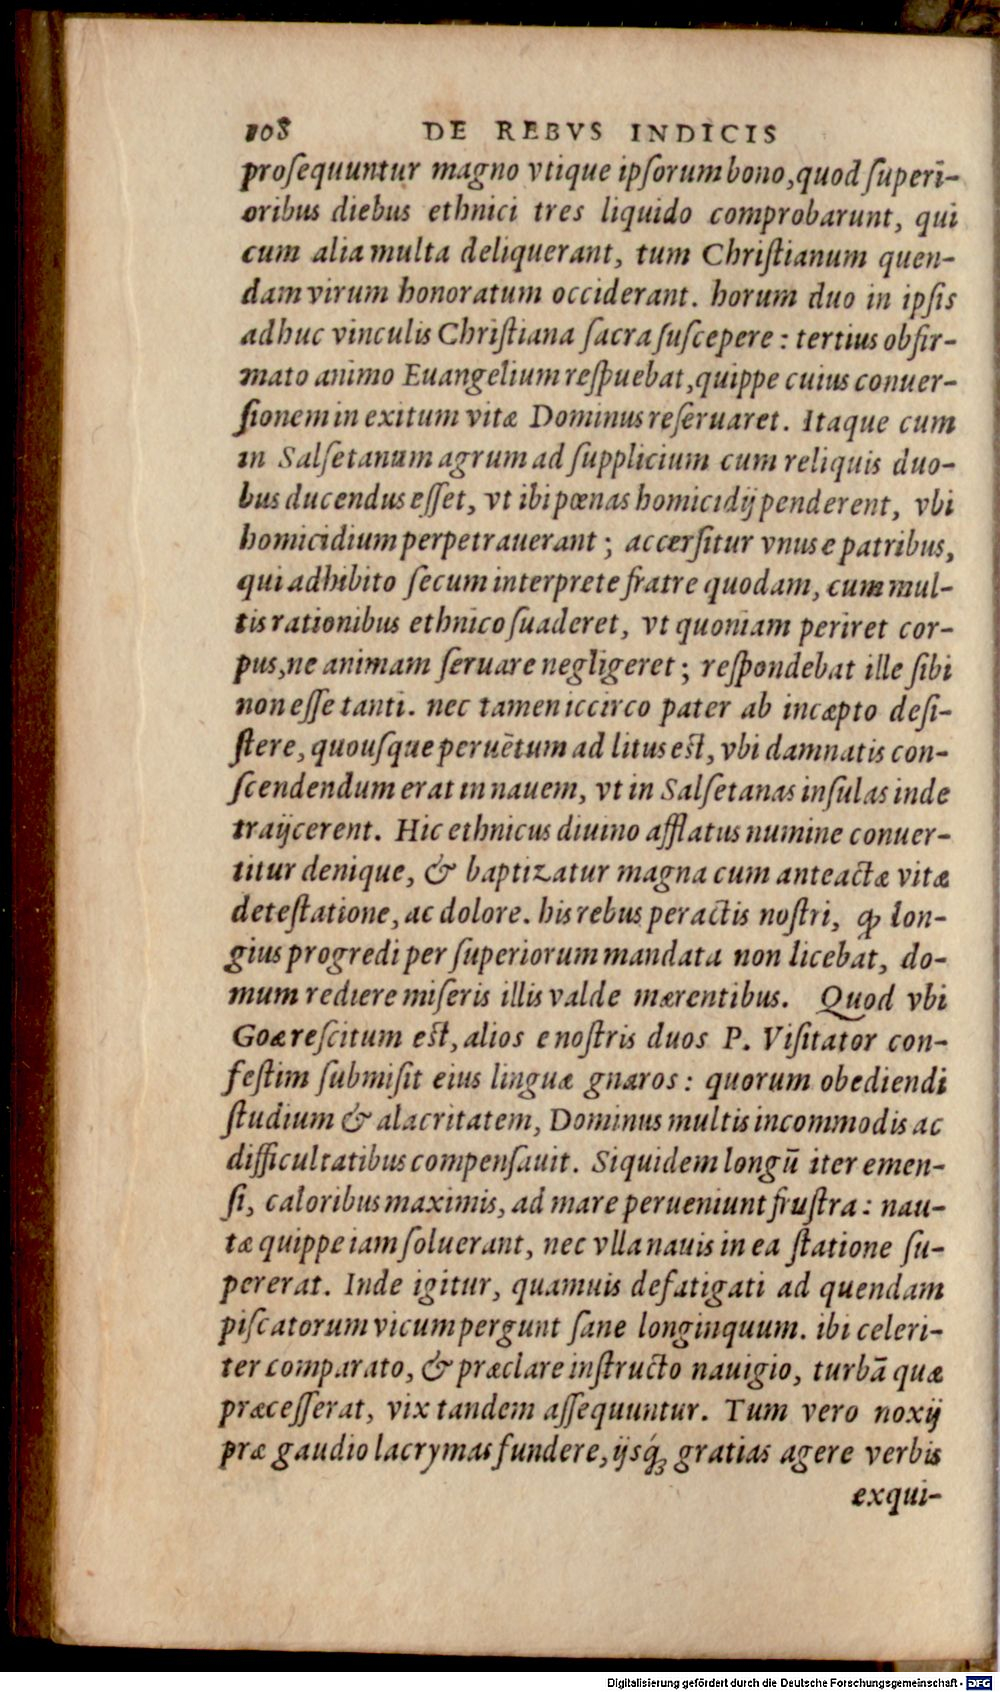 108 DE REBVS INDICIS
proſequuntur magno vtique ipſorum bono, quod ſuperi-
oribus diebus ethnici tres liquido comprobarunt, qui
cum alia multa deliquerant, tum Chriſtianum quen-
dam virum honoratum occiderant. horum duo in ipſis
adhuc vinculis Chriſtiana ſacra ſuſcepere : tertius obfir-
mato animo Euangelium reſpuebat, quippe cuius conuer-
ſionem in exitum vitæ Dominus reſeruaret. Itaque cum
in Salſetanum agrum ad ſupplicium cum reliquis duo-
bus ducendus eſſet, vt ibi pœnas homicidij penderent, vbi
homicidium perpetrauerant ; accerſitur vnus e patribus,
qui adhibito ſecum interprete fratre quodam, cum mul-
tis rationibus ethnico ſuaderet, vt quoniam periret cor-
pus, ne animam ſeruare negligeret ; reſpondebat ille ſibi
non eſſe tanti. nec tamen iccirco pater ab incœpto deſi-
ſtere, quouſque peruētum ad litus est, vbi damnatis con-
ſcendendum erat in nauem, vt in Salſetanas inſulas inde
traijcerent. Hic ethnicus diuino afflatus numine conuer-
titur denique, & baptizatur magna cum anteactæ vitæ
deteſtatione, ac dolore. his rebus peractis noſtri, ꝙ lon-
gius progredi per ſuperiorum mandata non licebat, do-
mum rediere miſeris illis valde mærentibus. Quod vbi
Goæ reſcitum est, alios e noſtris duos P. Viſitator con-
feſtim ſubmiſit eius linguæ gnaros : quorum obediendi
ſtudium & alacritatem, Dominus multis incommodis ac
difficultatibus compenſauit. Siquidem longū iter emen-
ſi, caloribus maximis, ad mare perueniunt fruſtra : nau-
tæ quippe iam ſoluerant, nec vlla nauis in ea ſtatione ſu-
pererat. Inde igitur, quamuis defatigati ad quendam
piſcatorum vicum pergunt ſane longinquum. ibi celeri-
ter comparato, & præclare inſtructo nauigio, turbā quæ
præceſſerat, vix tandem aſſequuntur. Tum vero noxij
præ gaudio lacrymas fundere, ijsq́ꝫ gratias agere verbis
exqui-
Digitalisierung gefördert durch die Deutsche Forschungsgemeinschaft - DFG